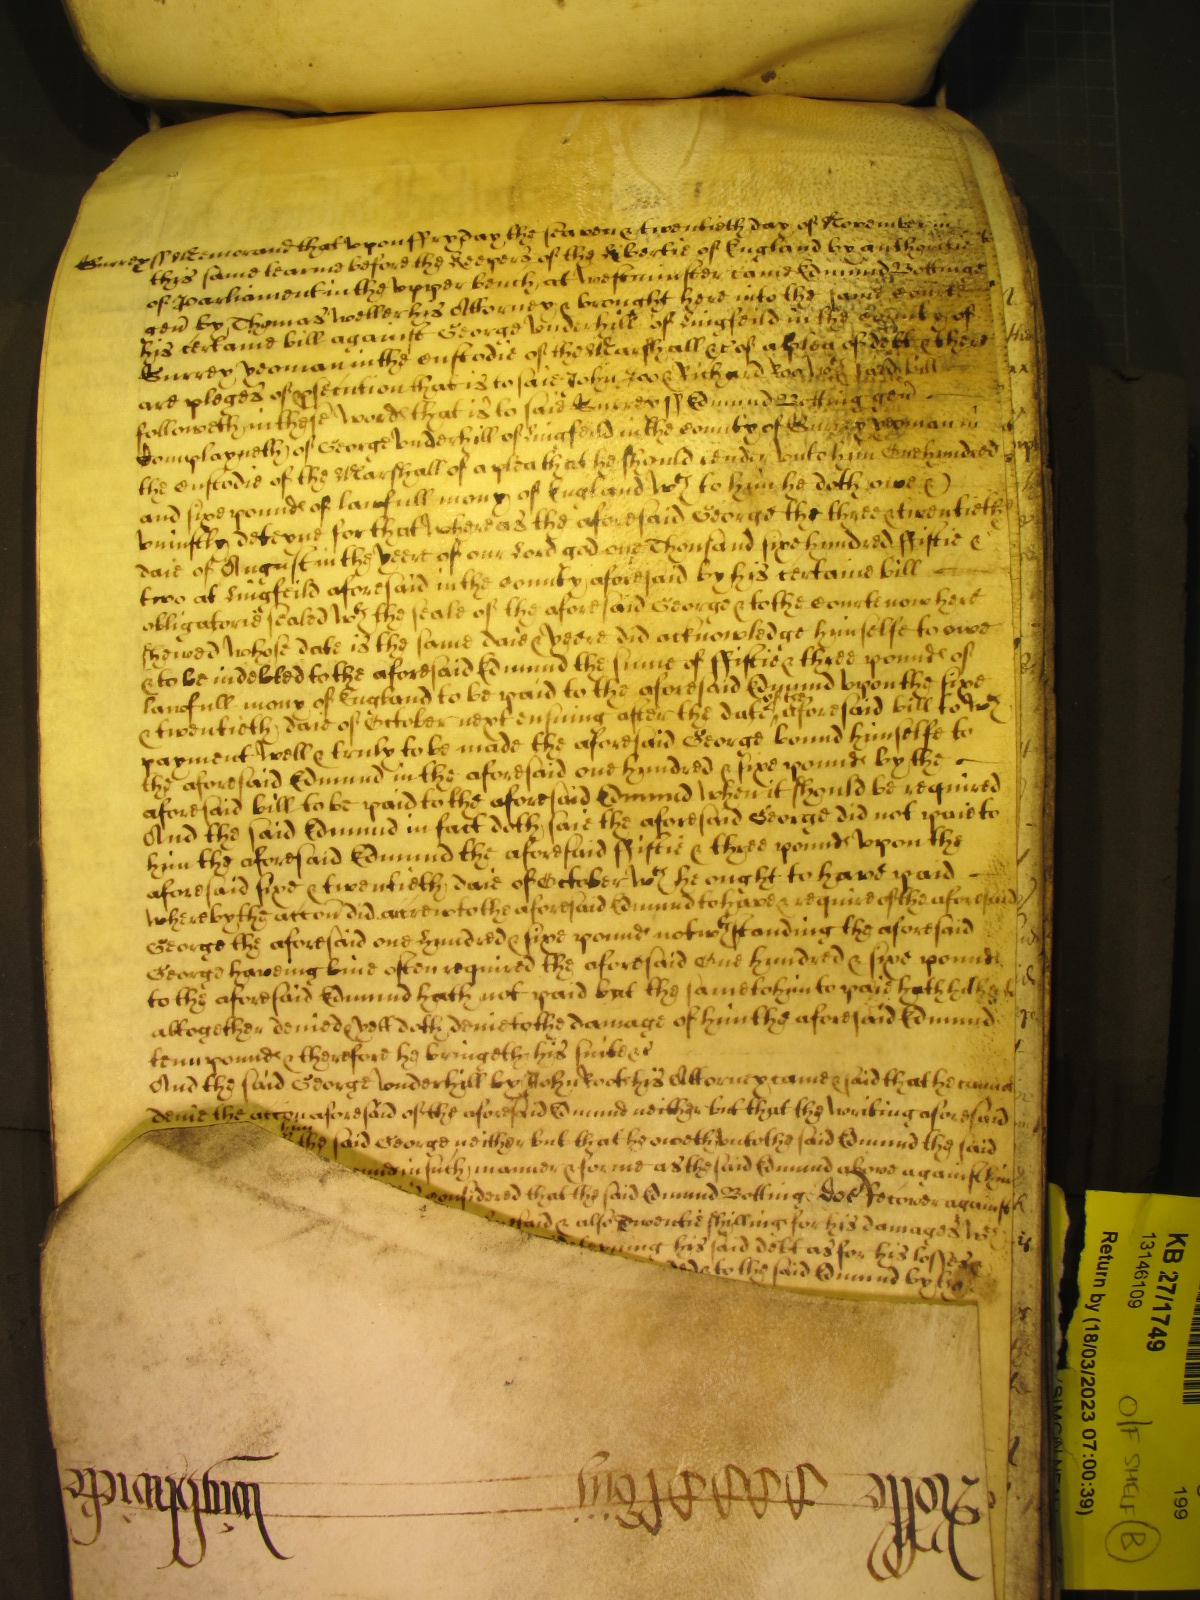 Surrey ss Memorand that upon ffryday the seaven & twentieth day of November in
this same tearme before the Keepers of the libertie of England by authoritie
of Parliament in the upper bench at Westminster came Edmund Bottinge
gen by Thomas Weller his Attorney & brought here into the same Courte
his certaine bill against George Underhill of Lingfeild in the County of
Surrey yeoman in the custodie of the Marshall &c of a plea of debt & there
are pleges of psecution that is to saie John Doo & Richard Roo wch said bill
followeth in these words that is to saie Surrey ss Edmund Botting gen
Complayneth of George Underhill of Lingfeild in the County of Surrey yeoman in
the custodie of the Marshall of a plea that he should render unto him One hundred
and sixe pounds of lawfull mony of England wch to him he doth owe &
uniustly deteyne for that whereas the aforesaid George the three & twentieth
daie of August in the yeere of our Lord god one Thousand sixe hundred ffiftie &
two at Lingfeild aforesaid in the county aforesaid by his certaine bill
obligatorie sealed wth the seale of the aforesaid George & to the Courte now here
shewed whose date is the same daie & yeere did acknowledge himselfe to owe
& to be indebted to the aforesaid Edmund the sume of ffiftie & three pounds of
lawfull mony of England to be paid to the aforesaid Edmund upon the sixe
& twentieth daie of October next ensuing after the date of the aforesaid bill to wch
payment well & truly to be made the aforesaid George bound himselfe to
the aforesaid Edmund in the aforesaid one hundred & sixe pounds by the
aforesaid bill to be paid to the aforesaid Edmund when it should be required
And the said Edmund in fact doth saie the aforesaid George did not paie to
him the aforesaid Edmund the aforesaid ffiftie & three pounds upon the
aforesaid sixe & twentieth daie of October wch he ought to have paid
whereby the accon did accrew to the aforesaid Edmund to have & require of the aforesaid
George the aforesaid one hundred & sixe pounds notwthstanding the aforesaid
George haveing bine often required the aforesaid One hundred & sixe pounds
to the aforesaid Edmund hath not paid but the same to him to paie hath hitherto
altogether denied & yett doth denie to the damage of him the aforesaid Edmund
tenn pounds & therefore he bringeth his suite &c
And the said George Underhill by John Roote his Attorney came & said that he cannot
denie the accon aforesaid of the aforesaid Edmund neither but that the writing aforesaid
the said George neither but that he oweth unto the said Edmund the said
in such manner & forme as the said Edmund above against him
considered that the said Edmund Botting doe Recover against
said & also Twentie shillings for his damages wch
deteyning his said debt as for his losses
to the said Edmund by the
Rolle
KB 27/1749
13146109
Return by (18/03/2023 07:00:39)
199
O/F SHELF B